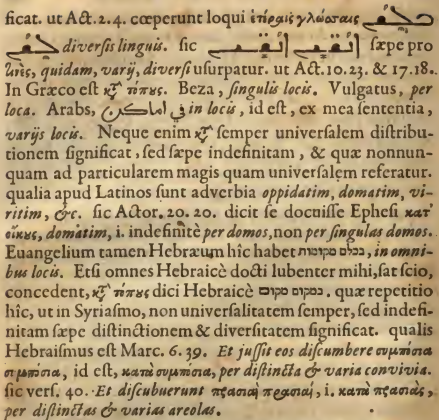 ficat. ut Act. 2. 4. cœperunt loqui ἑτέραις γλώσσαις ܒܠܫܢ
ܒܠܫܢ diversis linguis. sic ܐܢܫܝܢ ܐܢܫܝܢ sæpe pro
τινὲς, quidam, varij, diversi usurpatur. ut Act. 10. 23. & 17. 18.
In Græco est κτ̀ τόπυς. Beza, singulis locis. Vulgatus, per
loca. Arabs, في اماكن in locis, id est, ex mea sententia,
varijs locis. Neque enim κτ̀ semper universalem distribu-
tionem significat, sed sæpe indefinitam, & quæ nonnun-
quam ad particularem magis quam universalem referatur.
qualia apud Latinos sunt adverbia oppidatim, domatim, vi-
ritim, &c. sic Actor. 20. 20. dicit se docuisse Ephesi κατ'
οἴκυς, domatim, i. indefinitè per domos, non per singulas domos.
Euangelium tamen Hebræum hic habet בכלם מקומות, in omni-
bus locis. Etsi omnes Hebraicè docti lubenter mihi, sat scio,
concedent, κτ̀ τόπυς dici Hebraicè במקום מקום. quæ repetitio
hic, ut in Syriasmo, non universalitatem semper, sed indefi-
nitam sæpe distinctionem & diversitatem significat. qualis
Hebraismus est Marc. 6. 39. Et jussit eos discumbere συμπόσια
συμπόσια, id est, κατὰ συμπόσια, per distincta & varia convivia.
sic vers. 40. Et discubuerunt πρασιαὶ πρασιαὶ, i. κατὰ πρασιὰς,
per distinctas & varias areolas.